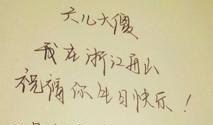 天儿大傻
我在浙江舟山
祝福你生日快乐！